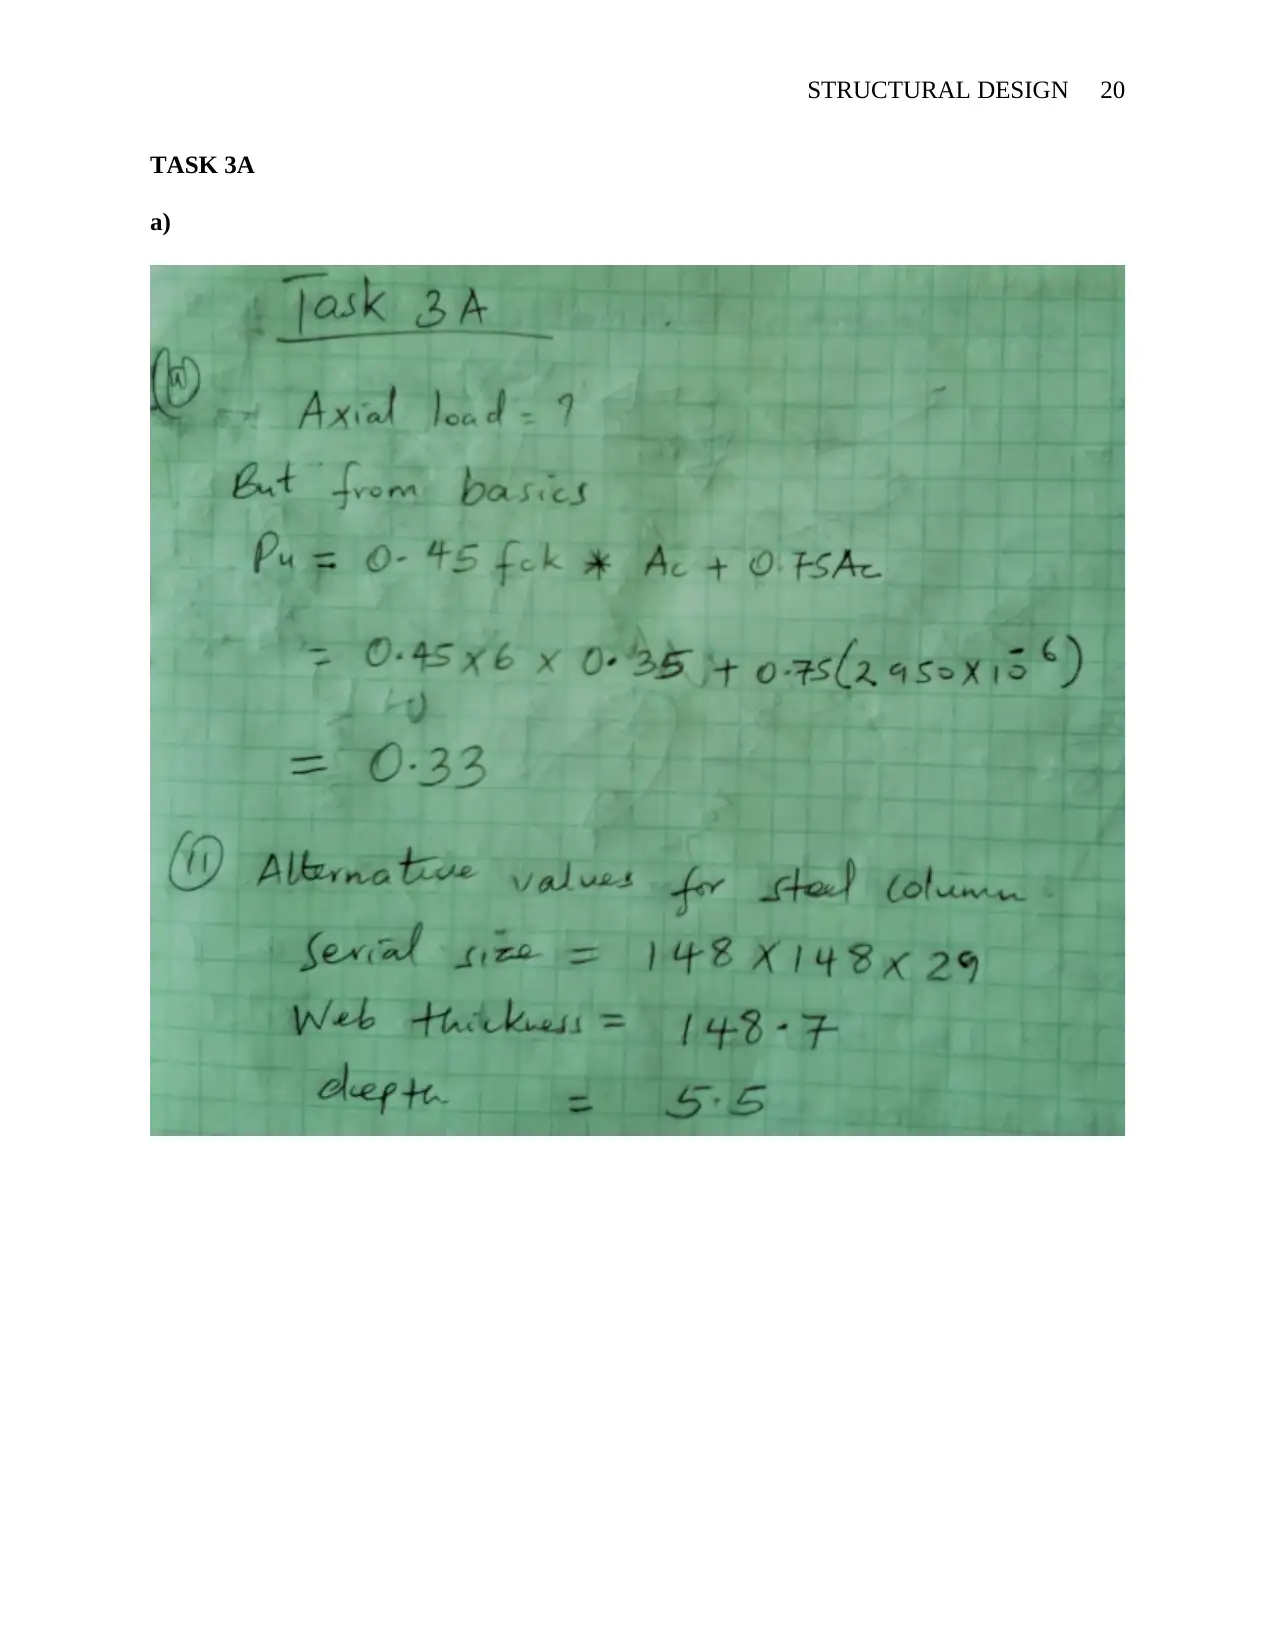 STRUCTURAL DESIGN 20
TASK 3A
a)
Task 3A
(a)
Axial load = ?
But from basics
Pu = 0.45 fck * Ac + 0.75Ac
= 0.45 x 6 x 0.35 + 0.75(2950x10⁻⁶)
= 0.33
(ii) Alternative values for steel column
Serial size = 148 X 148 x 29
Web thickness = 148.7
depth = 5.5